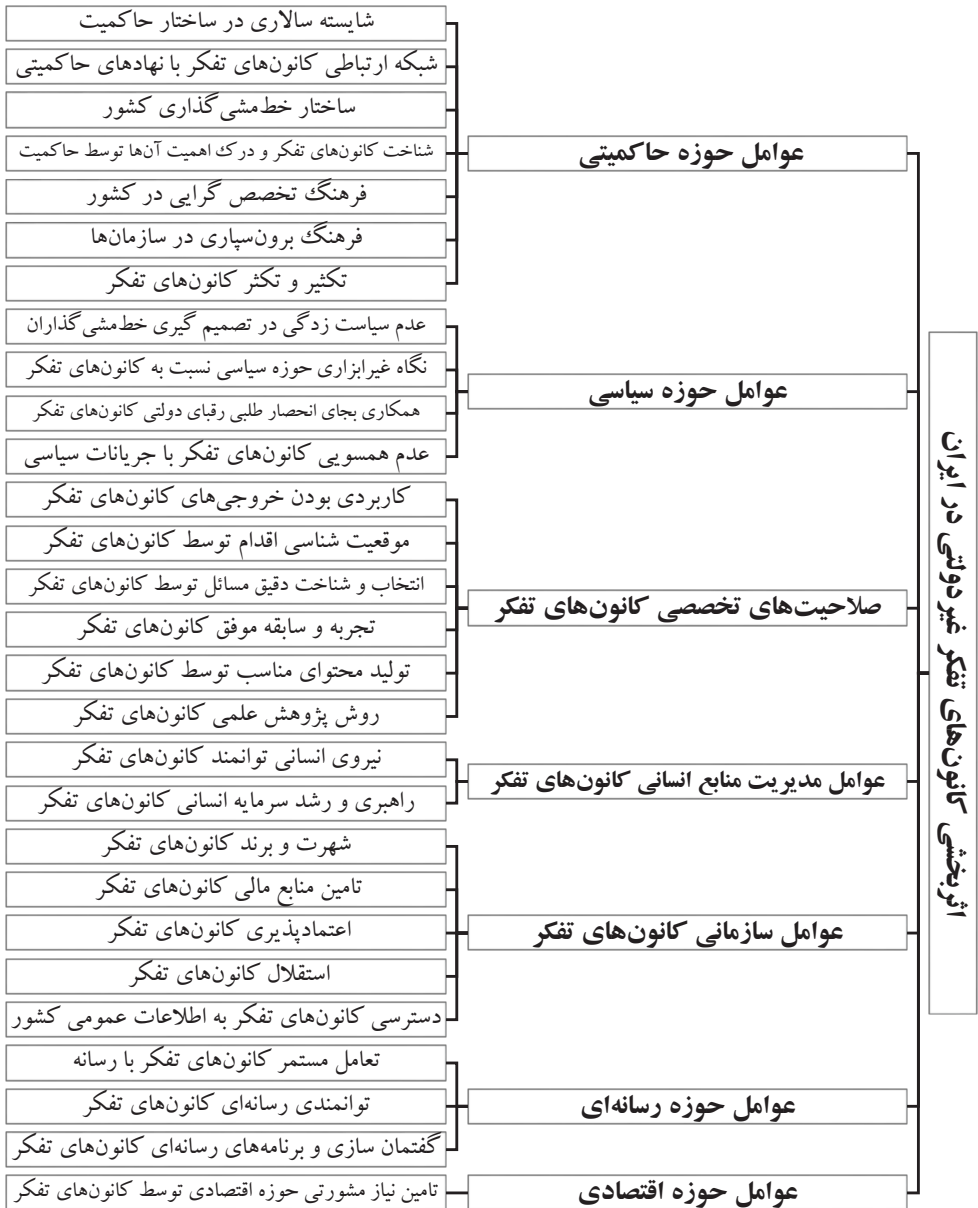 اثربخشی کانون‌های تفکر غیردولتی در ایران
عوامل حوزه حاکمیتی
شایسته سالاری در ساختار حاکمیت
شبکه ارتباطی کانون‌های تفکر با نهادهای حاکمیتی
ساختار خط‌مشی‌گذاری کشور
شناخت کانون‌های تفکر و درک اهمیت آن‌ها توسط حاکمیت
فرهنگ تخصص گرایی در کشور
فرهنگ برون‌سپاری در سازمان‌ها
تکثیر و تکثر کانون‌های تفکر
عوامل حوزه سیاسی
عدم سیاست زدگی در تصمیم گیری خط‌مشی‌گذاران
نگاه غیرابزاری حوزه سیاسی نسبت به کانون‌های تفکر
همکاری بجای انحصار طلبی رقبای دولتی کانون‌های تفکر
عدم همسویی کانون‌های تفکر با جریانات سیاسی
صلاحیت‌های تخصصی کانون‌های تفکر
کاربردی بودن خروجی‌های کانون‌های تفکر
موقعیت شناسی اقدام توسط کانون‌های تفکر
انتخاب و شناخت دقیق مسائل توسط کانون‌های تفکر
تجربه و سابقه موفق کانون‌های تفکر
تولید محتوای مناسب توسط کانون‌های تفکر
روش پژوهش علمی کانون‌های تفکر
عوامل مدیریت منابع انسانی کانون‌های تفکر
نیروی انسانی توانمند کانون‌های تفکر
راهبری و رشد سرمایه انسانی کانون‌های تفکر
عوامل سازمانی کانون‌های تفکر
شهرت و برند کانون‌های تفکر
تامین منابع مالی کانون‌های تفکر
اعتمادپذیری کانون‌های تفکر
استقلال کانون‌های تفکر
دسترسی کانون‌های تفکر به اطلاعات عمومی کشور
عوامل حوزه رسانه‌ای
تعامل مستمر کانون‌های تفکر با رسانه
توانمندی رسانه‌ای کانون‌های تفکر
گفتمان سازی و برنامه‌های رسانه‌ای کانون‌های تفکر
عوامل حوزه اقتصادی
تامین نیاز مشورتی حوزه اقتصادی توسط کانون‌های تفکر